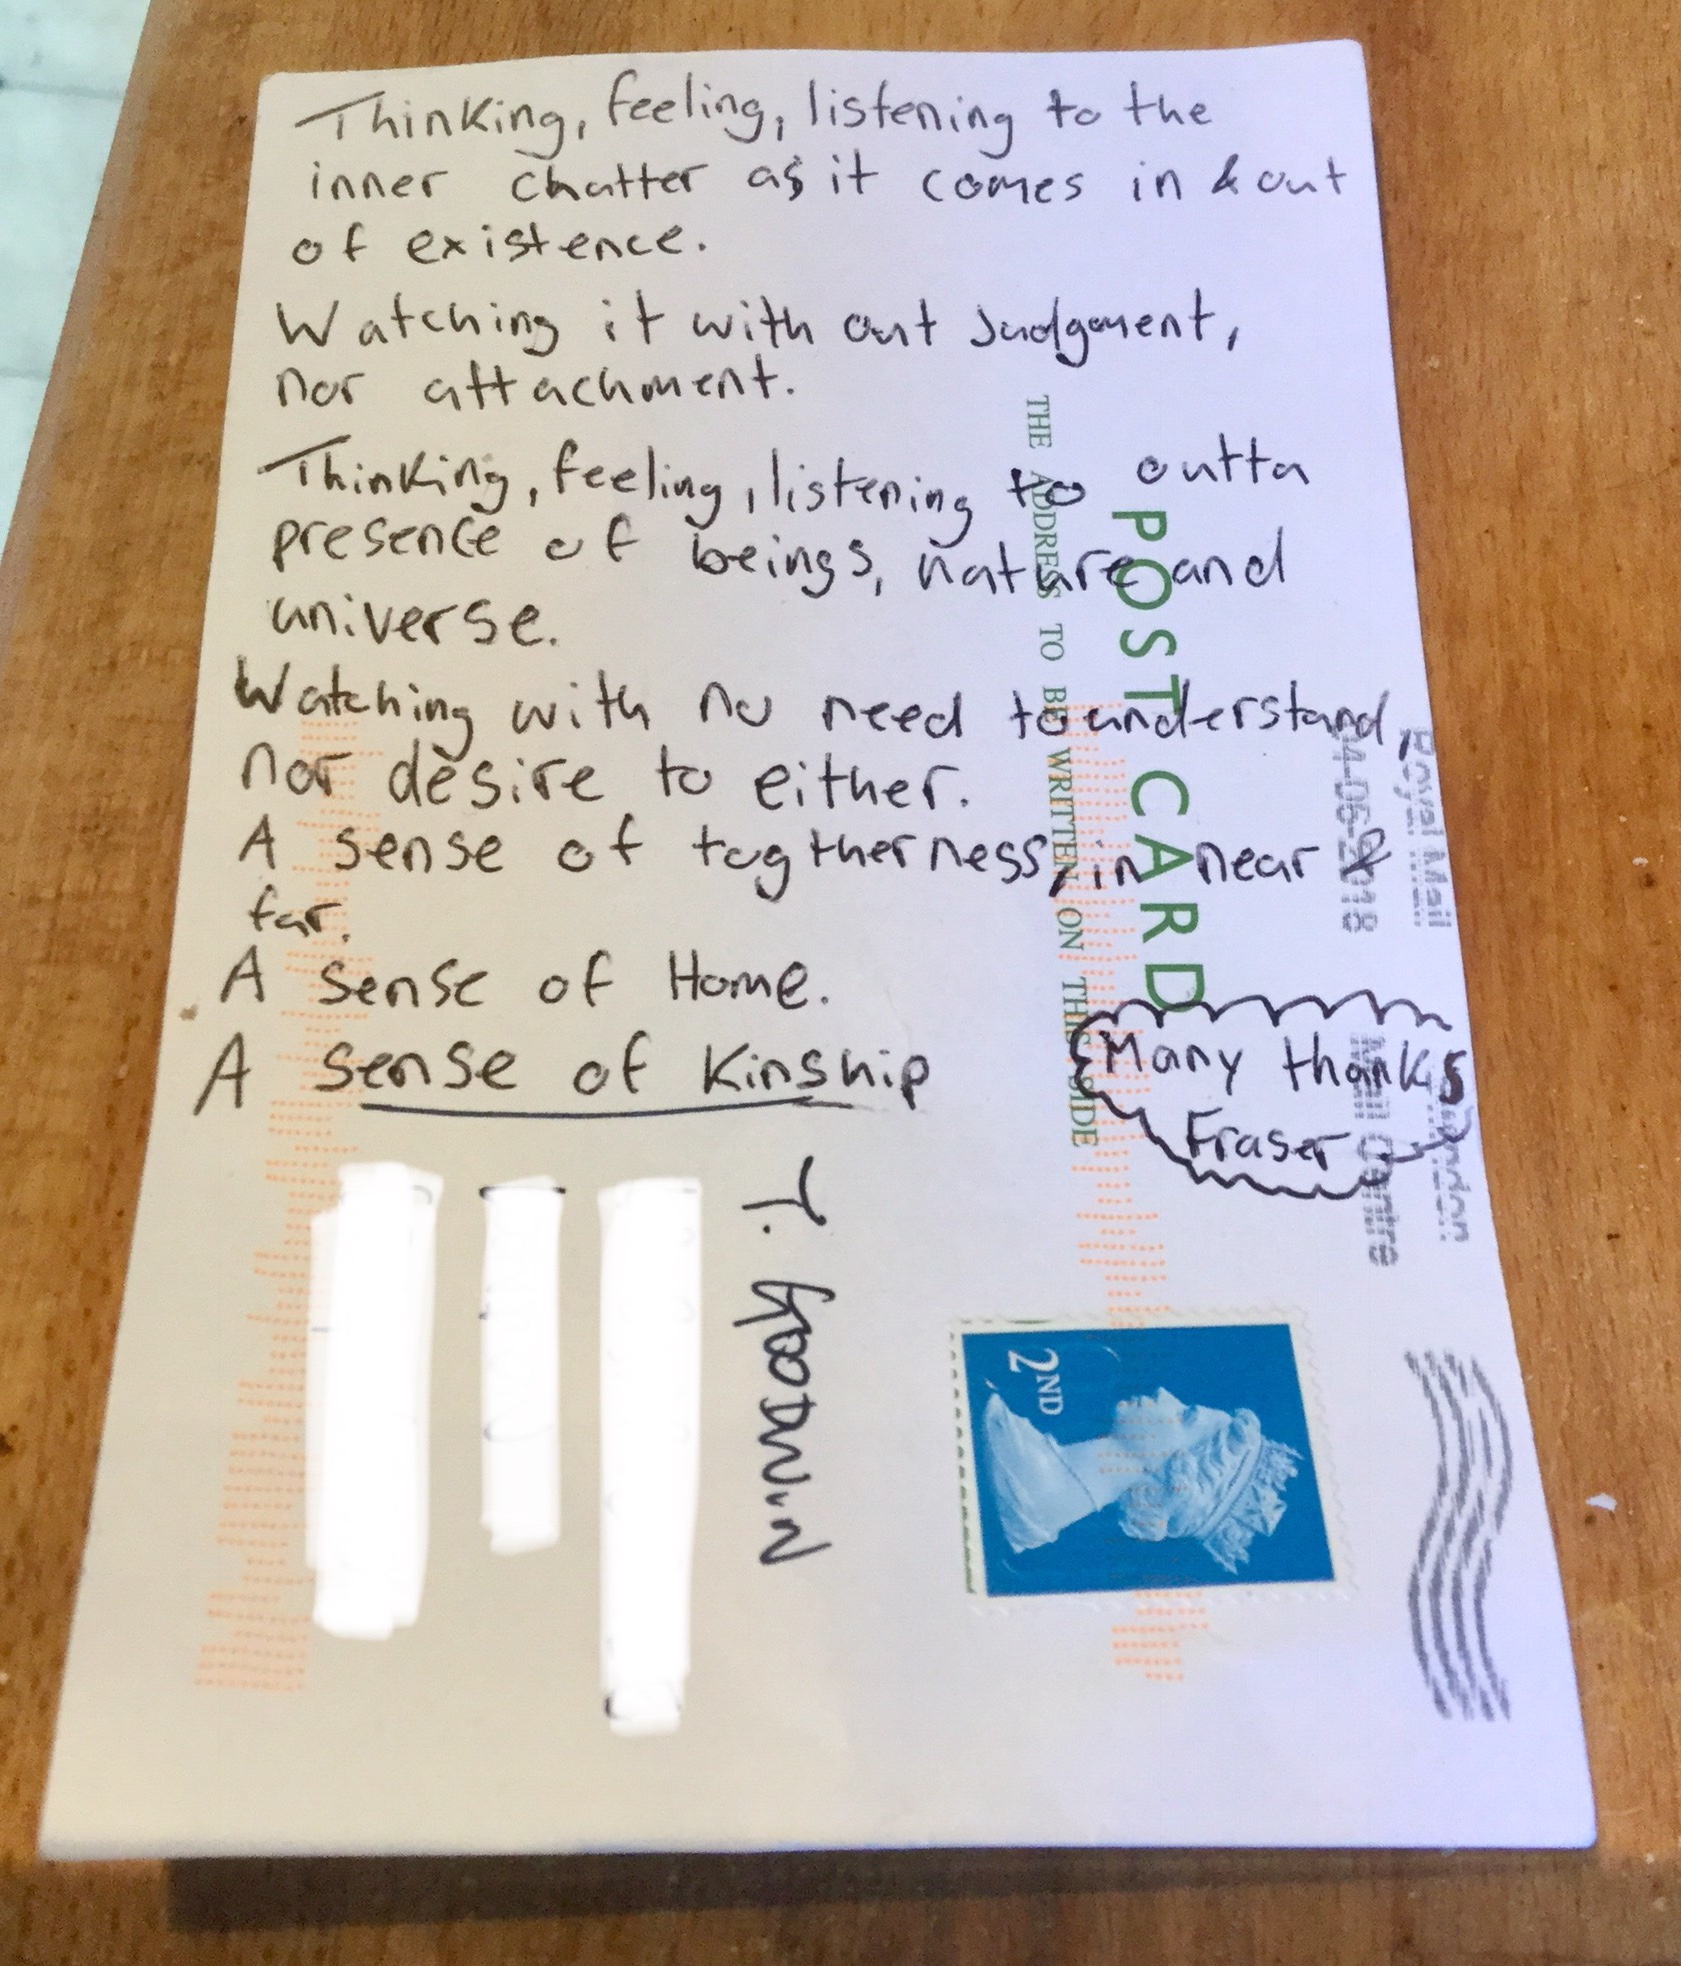 Thinking, feeling, listening to the
inner chatter as it comes in & out
of existence.
Watching it with out Judgment,
nor attachment.
Thinking, feeling, listening to outta
presence of beings, nature and
universe.
Watching with no need to understand,
nor desire to either.
A sense of togtherness, in near &
far.
A sense of Home.
A sense of Kinship
Many thanks
Fraser
POST CARD
THE ADDRESS TO BE WRITTEN ON THIS SIDE
Royal Mail
04-06-2018
Mail Centre
2ND
Y. Goodwin